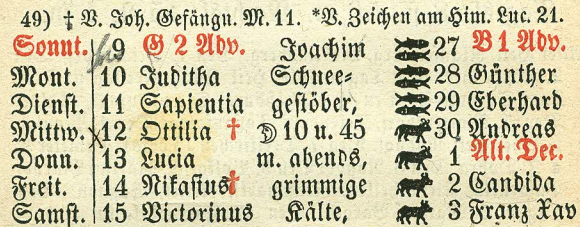 49) † V. Joh. Gefängn. M. 11. *V. Zeichen am Him. Luc. 21.
Sonnt. 9 G 2 Adv. Joachim 27 B 1 Adv.
Mont. 10 Juditha Schnee- 28 Günther
Dienst. 11 Sapientia gestöber, 29 Eberhard
Mittw. 12 Ottilia † 10 u. 45 30 Andreas
Donn. 13 Lucia m. abends, 1 Alt. Dec.
Freit. 14 Nikasius† grimmige 2 Candida
Samst. 15 Victorinus Kälte, 3 Franz Xav